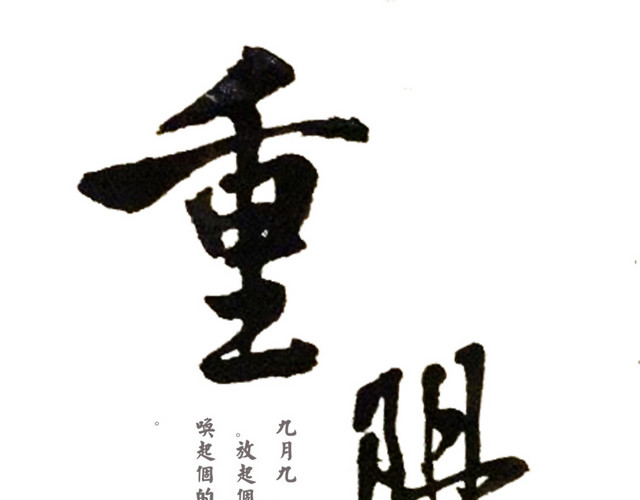 重
九月九
。放起個
喚起個的
。